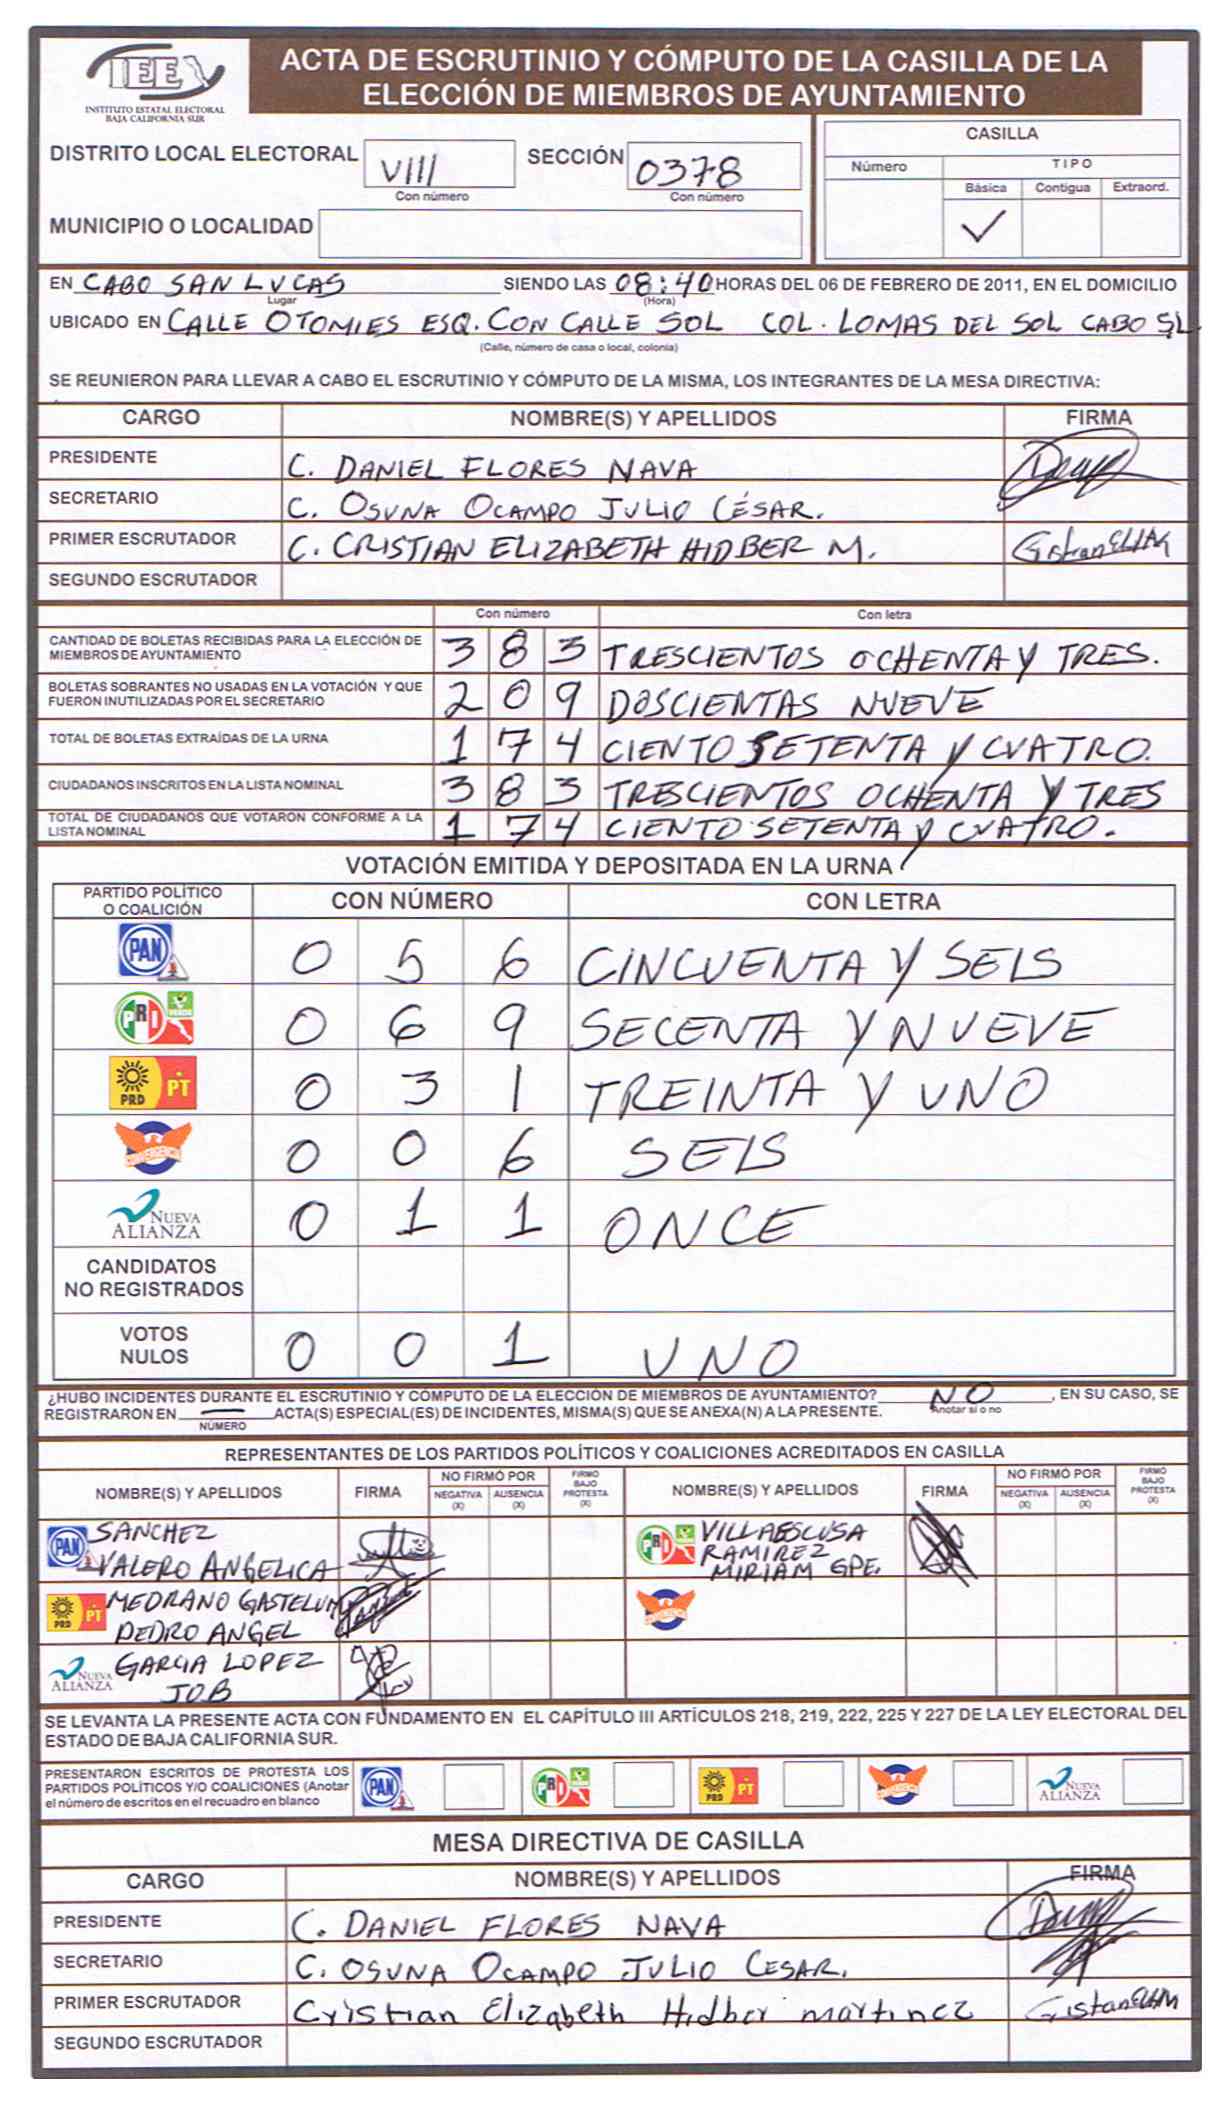 IEE
INSTITUTO ESTATAL ELECTORAL
BAJA CALIFORNIA SUR
ACTA DE ESCRUTINIO Y CÓMPUTO DE LA CASILLA DE LA
ELECCIÓN DE MIEMBROS DE AYUNTAMIENTO
DISTRITO LOCAL ELECTORAL VIII SECCIÓN 0378
Con número Con número
MUNICIPIO O LOCALIDAD
CASILLA
Número TIPO
Básica Contigua Extraord.
✓
EN CABO SAN LUCAS SIENDO LAS 08:40 HORAS DEL 06 DE FEBRERO DE 2011, EN EL DOMICILIO
Lugar (Hora)
UBICADO EN CALLE OTOMIES ESQ. CON CALLE SOL COL. LOMAS DEL SOL CABO S.L.
(Calle, número de casa o local, colonia)
SE REUNIERON PARA LLEVAR A CABO EL ESCRUTINIO Y CÓMPUTO DE LA MISMA, LOS INTEGRANTES DE LA MESA DIRECTIVA:
CARGO NOMBRE(S) Y APELLIDOS FIRMA
PRESIDENTE C. DANIEL FLORES NAVA
SECRETARIO C. OSUNA OCAMPO JULIO CÉSAR.
PRIMER ESCRUTADOR C. CRISTIAN ELIZABETH HIDBER M.
SEGUNDO ESCRUTADOR
Con número Con letra
CANTIDAD DE BOLETAS RECIBIDAS PARA LA ELECCIÓN DE
MIEMBROS DE AYUNTAMIENTO 3 8 3 TRESCIENTOS OCHENTA Y TRES.
BOLETAS SOBRANTES NO USADAS EN LA VOTACIÓN Y QUE
FUERON INUTILIZADAS POR EL SECRETARIO 2 0 9 DOSCIENTAS NUEVE
TOTAL DE BOLETAS EXTRAÍDAS DE LA URNA 1 7 4 CIENTO SETENTA Y CUATRO.
CIUDADANOS INSCRITOS EN LA LISTA NOMINAL 3 8 3 TRESCIENTOS OCHENTA Y TRES
TOTAL DE CIUDADANOS QUE VOTARON CONFORME A LA
LISTA NOMINAL 1 7 4 CIENTO SETENTA Y CUATRO.
VOTACIÓN EMITIDA Y DEPOSITADA EN LA URNA
PARTIDO POLÍTICO
O COALICIÓN CON NÚMERO CON LETRA
PAN 0 5 6 CINCUENTA Y SEIS
PRI VERDE 0 6 9 SECENTA Y NUEVE
PRD PT 0 3 1 TREINTA Y UNO
CONVERGENCIA 0 0 6 SEIS
NUEVA ALIANZA 0 1 1 ONCE
CANDIDATOS
NO REGISTRADOS
VOTOS
NULOS 0 0 1 UNO
¿HUBO INCIDENTES DURANTE EL ESCRUTINIO Y CÓMPUTO DE LA ELECCIÓN DE MIEMBROS DE AYUNTAMIENTO? NO, EN SU CASO, SE
Anotar sí o no
REGISTRARON EN — ACTA(S) ESPECIAL(ES) DE INCIDENTES, MISMA(S) QUE SE ANEXA(N) A LA PRESENTE.
NÚMERO
REPRESENTANTES DE LOS PARTIDOS POLÍTICOS Y COALICIONES ACREDITADOS EN CASILLA
NOMBRE(S) Y APELLIDOS FIRMA NO FIRMÓ POR NEGATIVA (X) AUSENCIA (X) FIRMÓ BAJO PROTESTA (X) NOMBRE(S) Y APELLIDOS FIRMA NO FIRMÓ POR NEGATIVA (X) AUSENCIA (X) FIRMÓ BAJO PROTESTA (X)
PAN SANCHEZ
VALERO ANGELICA
PRI VILLAESCUSA
RAMIREZ
MIRIAM GPE.
PRD PT MEDRANO GASTELUM
PEDRO ANGEL
CONVERGENCIA
NUEVA ALIANZA GARCIA LOPEZ
JOB
SE LEVANTA LA PRESENTE ACTA CON FUNDAMENTO EN EL CAPÍTULO III ARTÍCULOS 218, 219, 222, 225 Y 227 DE LA LEY ELECTORAL DEL
ESTADO DE BAJA CALIFORNIA SUR.
PRESENTARON ESCRITOS DE PROTESTA LOS
PARTIDOS POLÍTICOS Y/O COALICIONES (Anotar
el número de escritos en el recuadro en blanco
PAN PRI PRD PT CONVERGENCIA NUEVA ALIANZA
MESA DIRECTIVA DE CASILLA
CARGO NOMBRE(S) Y APELLIDOS FIRMA
PRESIDENTE C. DANIEL FLORES NAVA
SECRETARIO C. OSUNA OCAMPO JULIO CESAR.
PRIMER ESCRUTADOR Cristian Elizabeth Hidber martinez
SEGUNDO ESCRUTADOR